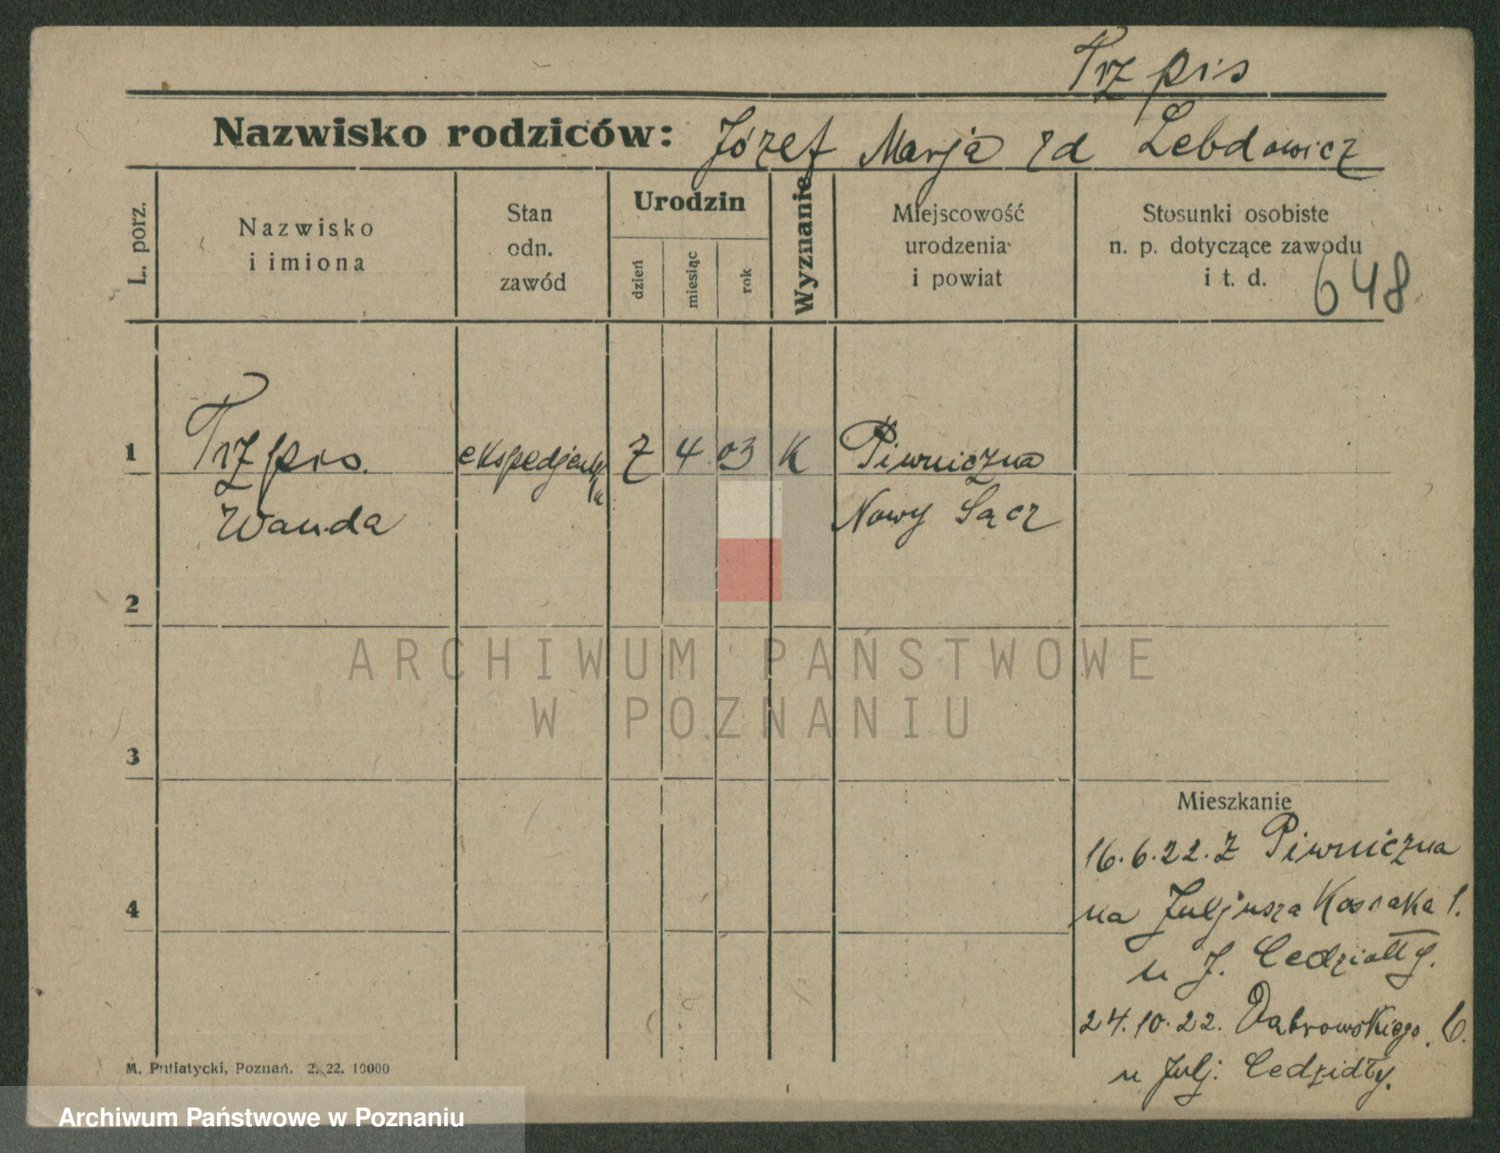 Trzpis
Nazwisko rodziców: Józef Marja zd Lebdowicz
L. porz.
Nazwisko
i imiona
Stan
odn.
zawód
Urodzin
dzień
miesiąc
rok
Wyznanie
Miejscowość
urodzenia
i powiat
Stosunki osobiste
n. p. dotyczące zawodu
i t. d.
648
1 Trzpis ekspedjentka 2 4 03 K Piwniczna
Wanda Nowy Sącz
2
ARCHIWUM PAŃSTWOWE
W POZNANIU
3
Mieszkanie
16.6.22. z Piwniczna
4
na Juljusza Kossaka 1.
u J. Cedziołły.
24.10.22. Dąbrowskiego. 6.
u Julj. Cedzidły.
M. Putiatycki, Poznań. 2. 22. 10000
Archiwum Państwowe w Poznaniu